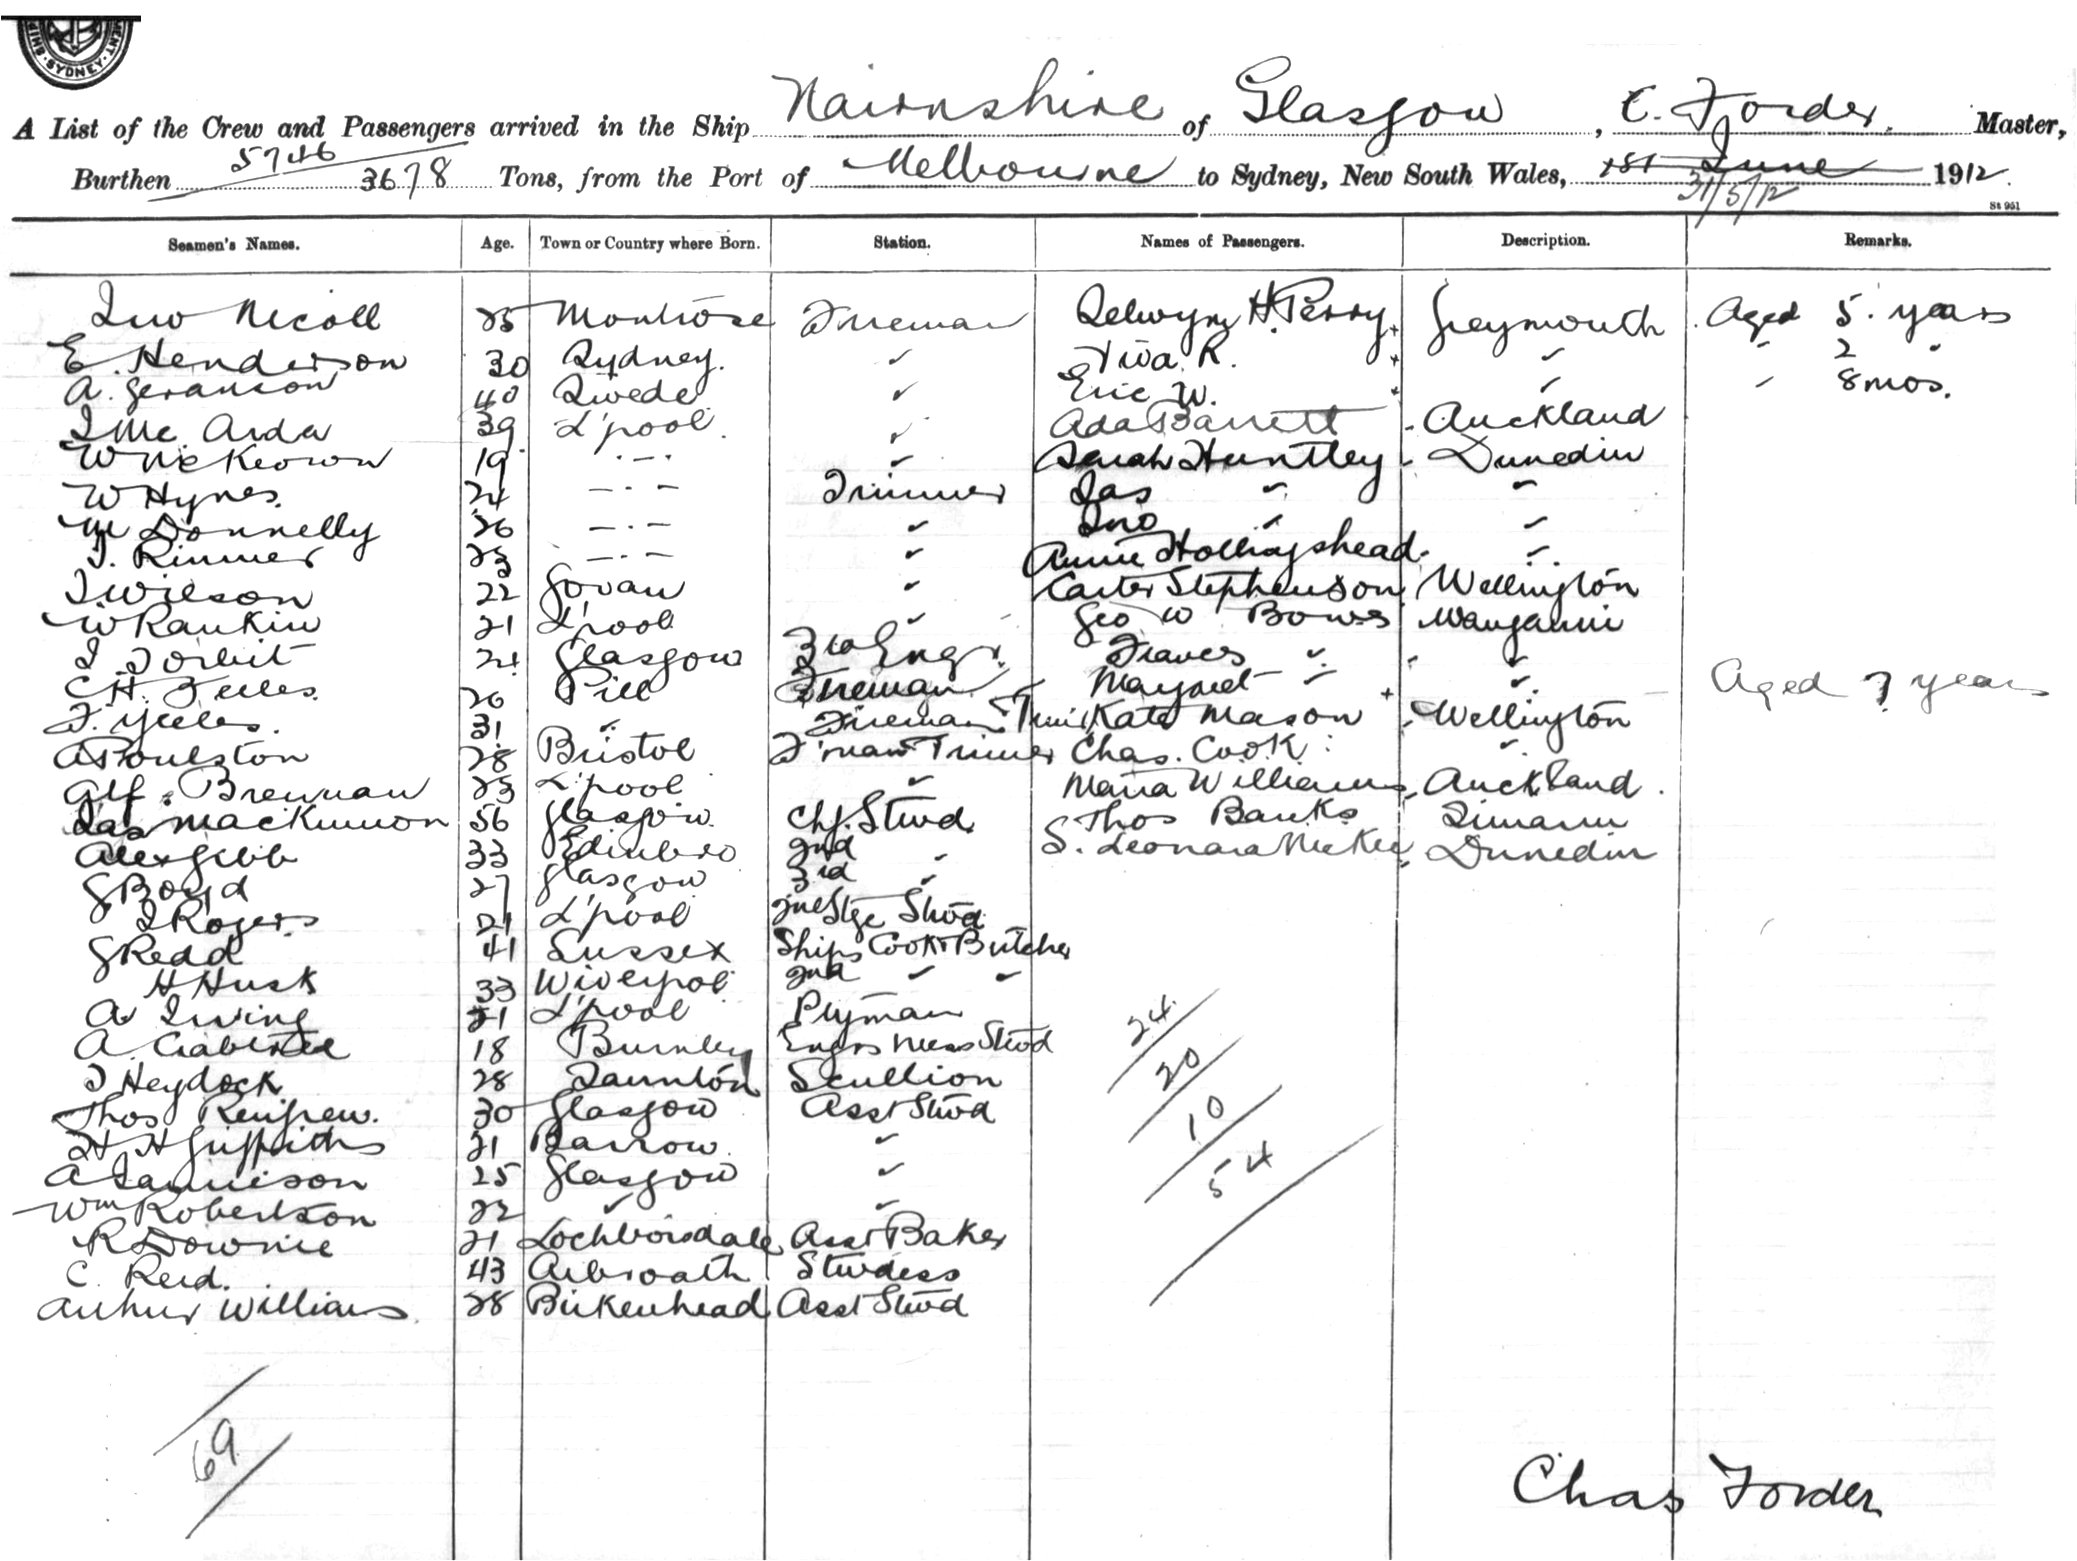 SYDNEY
A List of the Crew and Passengers arrived in the Ship Nairnshire of Glasgow, C. Forder. Master,
Burthen 5746 3678 Tons, from the Port of Melbourne to Sydney, New South Wales, 1st June 1912.
31/5/12
St 951
Seamen's Names. Age. Town or Country where Born. Station. Names of Passengers. Description. Remarks.
Jno Nicoll 25 Montrose Fireman Selwyn H. Perry Greymouth Aged 5. years
E. Henderson 30 Sydney. " R. " " 2 "
A. 40 Swede " Eric W. " " 8 mos.
J Mc Arda 39 L'pool. " Ada Barrett Auckland
W McKeown 19 " " Sarah Huntley Dunedin
W Hynes. 24 " Trimmer Jas " "
M Donnelly 26 " " Jno " "
T. Rimmer 23 " " Annie Hollingshead "
J Wilson 22 Govan " Carter Stephenson Wellington
W Rankin 21 L'pool " Geo W Bowes Wanganui
J Torbit 24 Glasgow 3rd Engr. Frances " "
C H. 26 Pill Fireman Margaret " " Aged 7 years
F. Yeeles. 31 " Fireman & Kate Mason Wellington
A Poulston 28 Bristol F'man & Trimer Chas. Cook "
Alf. Brennan 23 L'pool " Maria Williams Auckland.
Jas MacKinnon 56 Glasgow Chf. Stwd. Thos Banks Timaru
Alex Gibb 33 Edinbro 2nd " S. Leonara McKee Dunedin
G Boyd 27 Glasgow 3rd "
J Rogers 21 L'pool Stge Stwd
G Read 41 Sussex Ships Cook & Butcher
H Husk 33 2nd " "
A Irving 21 L'pool Ptyman
A. Crabtree 18 Burnley Engrs Mess Stwd
J Heydock 28 Taunton Scullion
Thos Renfrew. 30 Glasgow Asst Stwd
H H Griffiths 21 Barrow "
A Jamieson 25 Glasgow "
Wm Robertson 22 " "
R Downie 21 Lochboisdale Asst Baker
C. Reid. 43 Arbroath Stwdess
Arthur Williams 28 Birkenhead Asst Stwd
24
20
10
54
69
Chas Forder